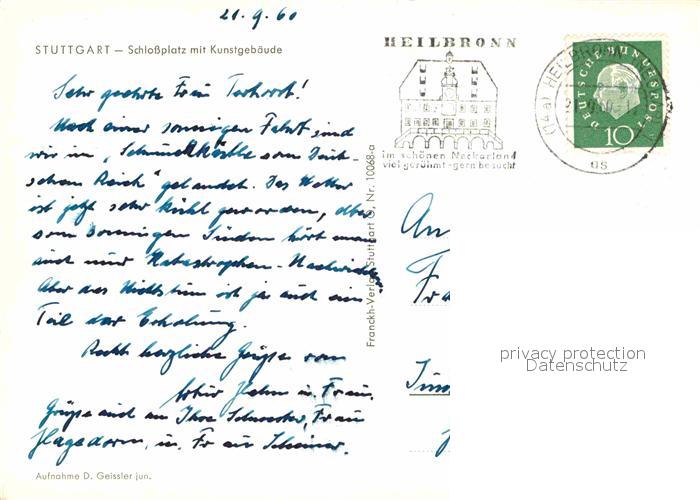 21.9.60
STUTTGART — Schloßplatz mit Kunstgebäude
Sehr geehrte Frau Terhorst!
Nach einer sonnigen Fahrt sind
wir im "Schmuckkästle vom Deut-
schen Reich" gelandet. Das Wetter
ist jetzt sehr kühl geworden, aber
vom sonnigen Süden hört man
auch nur Katastrophen-Nachrichten
Aber das Nichtstun ist ja auch ein
Teil der Erholung.
Recht herzliche Grüße von
Hahn u. Frau.
Grüße auch an Ihre Schwester, Frau
Hagedorn, u. Frau
Aufnahme D. Geissler jun.
Franckh-Verlag Stuttgart O, Nr. 10068-a
HEILBRONN
im schönen Neckarland
viel gerühmt - gern besucht
(14a) HEILBRONN
as
DEUTSCHE BUNDESPOST
10
An
Fra
privacy protection
Datenschutz